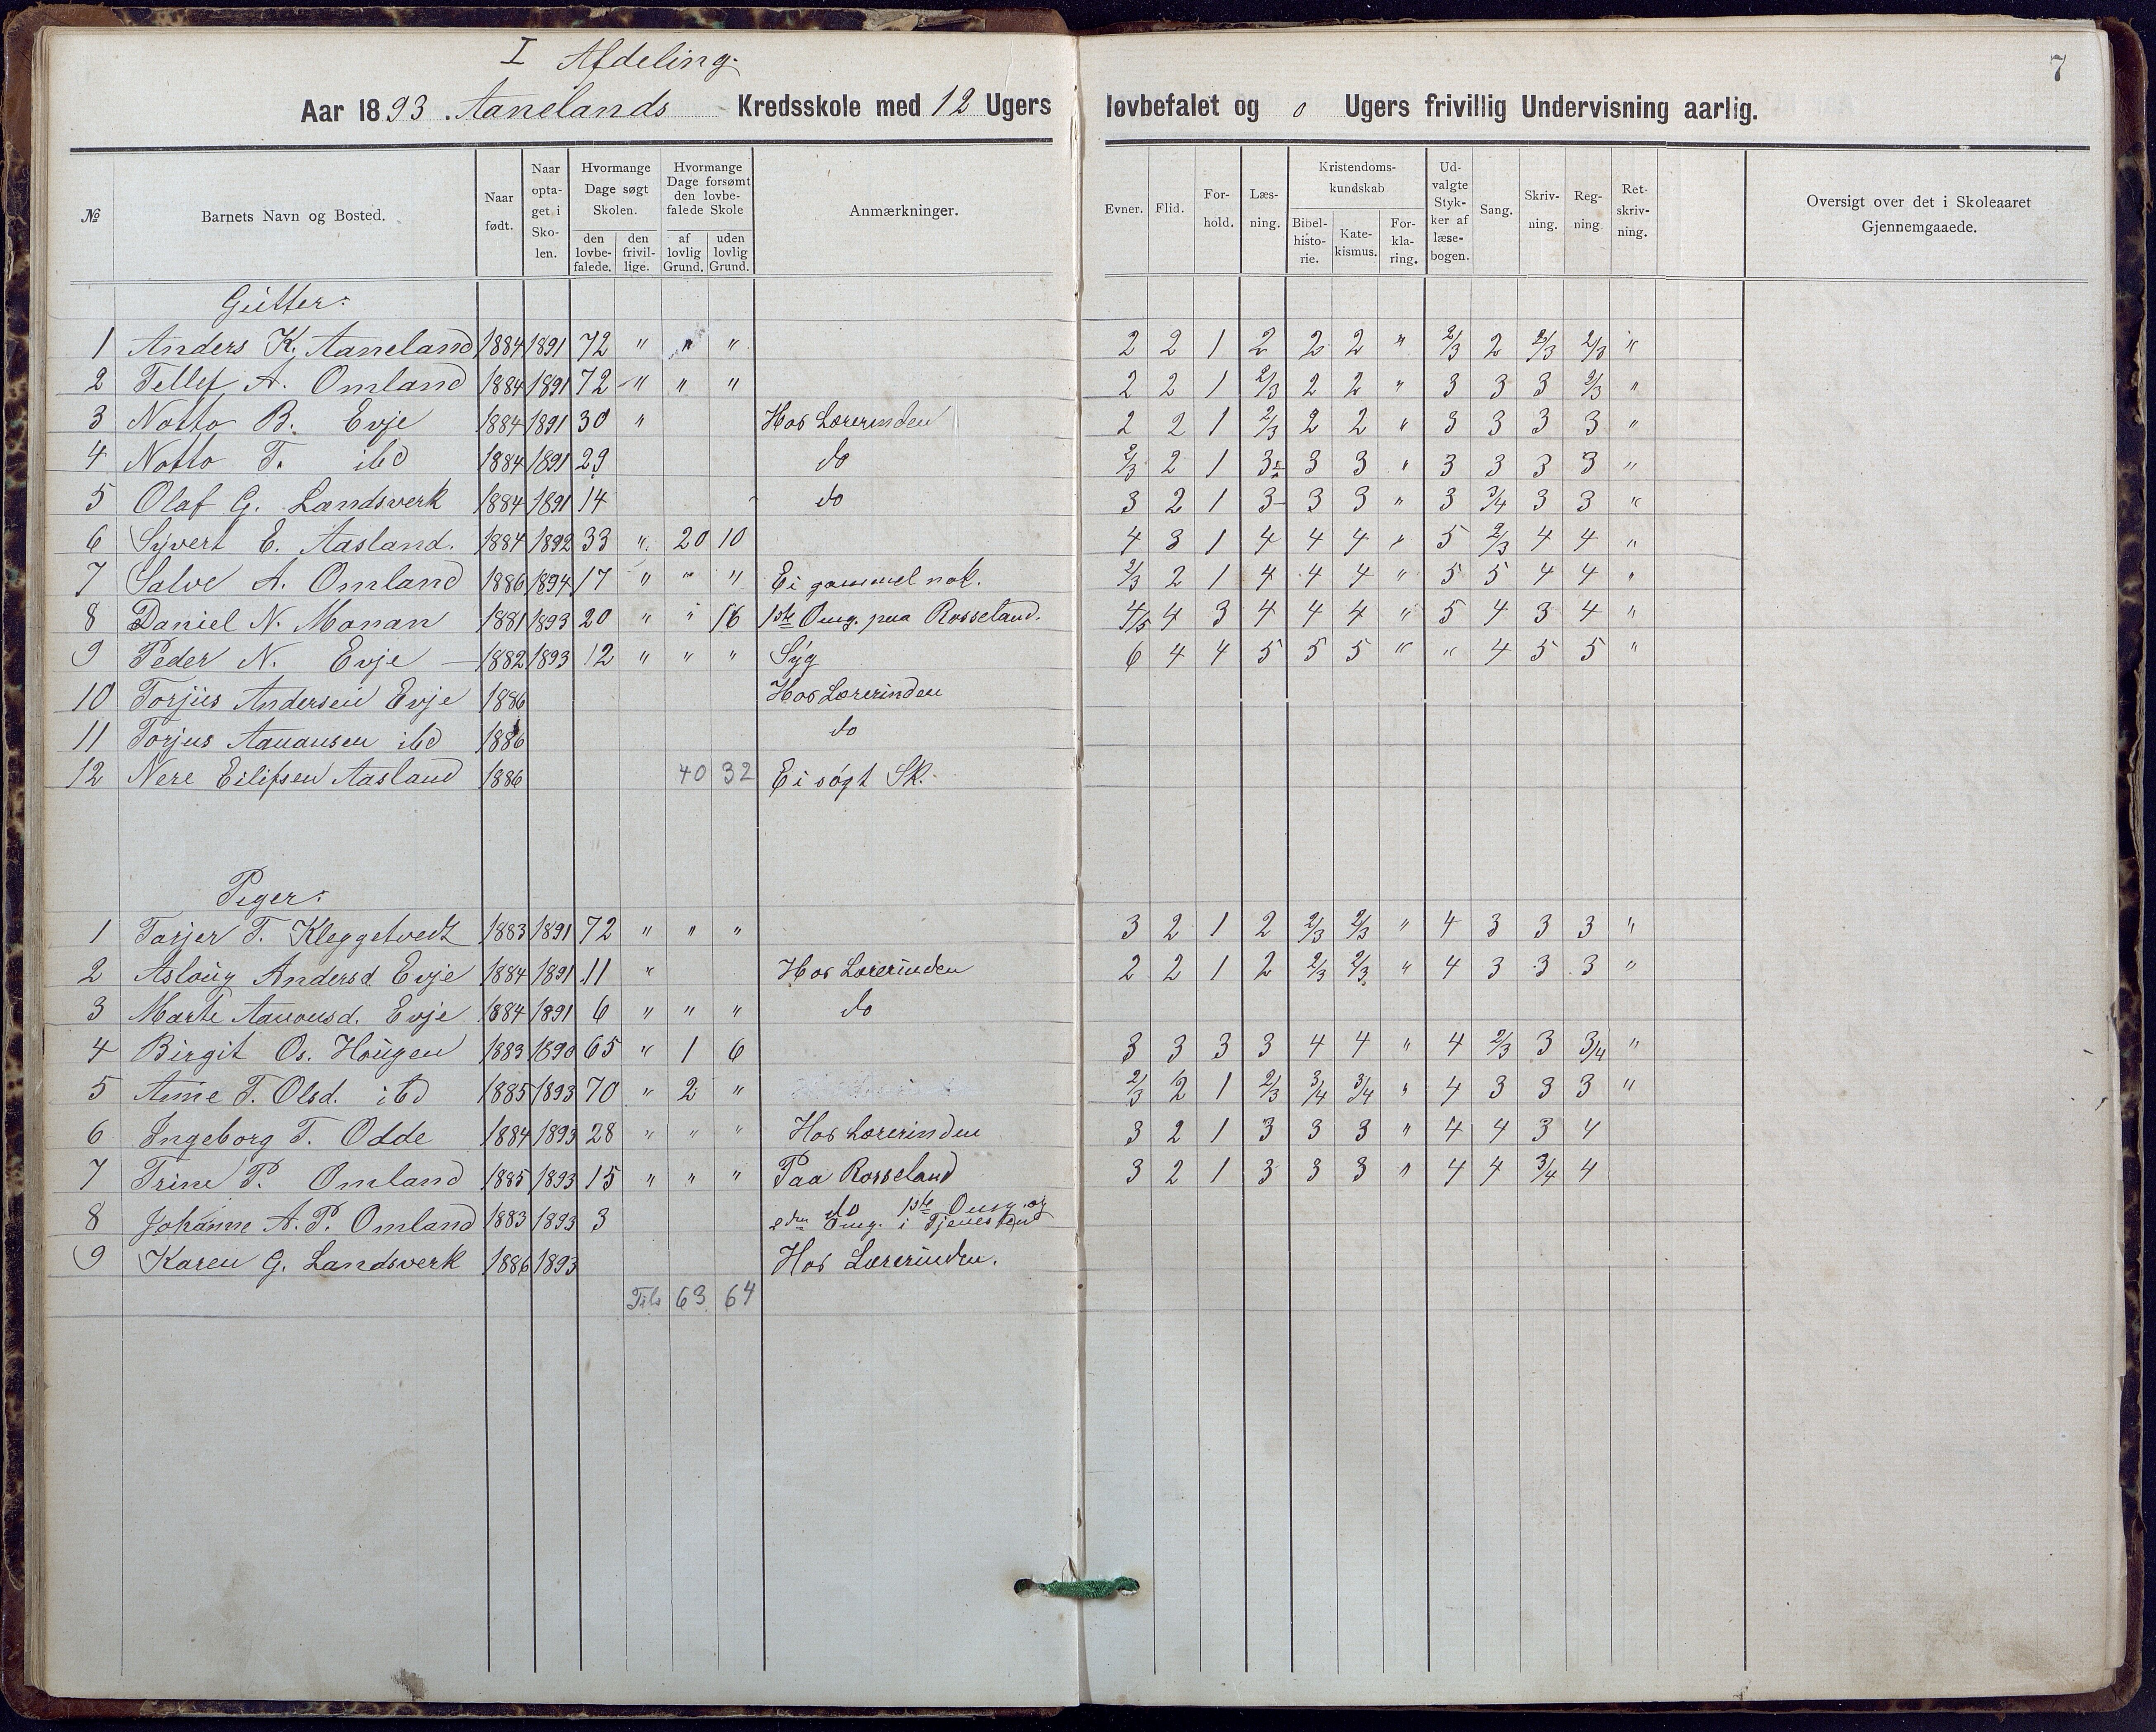 I Afdeling.
7
Aar 1893. Aanelands Kredsskole med 12 Ugers løvbefalet og 0 Ugers frivillig Undervisning aarlig.
№ | Barnets Navn og Bosted. | Naar født. | Naar optaget i Skolen. | Hvormange Dage søgt Skolen. den lovbefalede. | den frivillige. | Hvormange Dage forsømt den lovbefalede Skole af lovlig Grund. | uden lovlig Grund. | Anmærkninger. | Evner. | Flid. | Forhold. | Læsning. | Kristendomskundskab Bibelhistorie. | Katekismus. | Forklaring. | Udvalgte Stykker af læsebogen. | Sang. | Skrivning. | Regning | Retskrivning. | Oversigt over det i Skoleaaret Gjennemgaaede.
Gutter:
1 Anders K. Aaneland 1884 1891 72 " " " 2 2 1 2 2 2 " 2/3 2 2/3 2/3 "
2 Tellef A. Omland 1884 1891 72 " " " 2 2 1 2/3 2 2 " 3 3 3 2/3 "
3 Notto B. Evje 1884 1891 30 " Hos Lærerinden 2 2 1 2/3 2 2 " 3 3 3 3 "
4 Notto T. ibd 1884 1891 29 do 2/3 2 1 3 3 3 " 3 3 3 3 "
5 Olaf G. Landsverk 1884 1891 14 do 3 2 1 3 3 3 " 3 3/4 3 3 "
6 Syvert E. Aasland. 1884 1892 33 " 20 10 4 3 1 4 4 4 " 5 2/3 4 4 "
7 Salve A. Omland 1886 1894 17 " " " Ei gammel nok. 2/3 2 1 4 4 4 " 5 5 4 4 "
8 Daniel N. Monan 1881 1893 20 " " 16 1ste Omg. paa Rosseland. 4/5 4 3 4 4 4 " 5 4 3 4 "
9 Peder N. Evje 1882 1893 12 " " " Syg 6 4 4 5 5 5 " " 4 5 5 "
10 Torjus Andersen Evje 1886 Hos Lærerinden
11 Torjus Aanonsen ibd 1886 do
12 Nere Eilifsen Aasland 1886 40 32 Ei søgt Sk.
Piger:
1 Tarjer T. Kleggetvedt 1883 1891 72 " " " 3 2 1 2 2/3 2/3 " 4 3 3 3 "
2 Asloug Andersd. Evje 1884 1891 11 " Hos Lærerinden 2 2 1 2 2/3 2/3 " 4 3 3 3 "
3 Marte Aanonsd. Evje 1884 1891 6 " " " do
4 Birgit Os. Hougen 1883 1890 65 " 1 6 3 3 3 3 4 4 " 4 2/3 3 3/4 "
5 Anne T. Olsd. ibd 1885 1893 70 " 2 " 2/3 2 1 2/3 3/4 3/4 " 4 3 3 3 "
6 Ingeborg T. Odde 1884 1893 28 " " " Hos Lærerinden 3 2 1 3 3 3 " 4 4 3 4
7 Trine P. Omland 1885 1893 15 " " " Paa Rosseland 3 2 1 3 3 3 " 4 4 3/4 4
8 Johanne A. P. Omland 1883 1893 3 do 1ste Omg. og
2den Omg. i Tjeneste
9 Karen G. Landsverk 1886 1893 Hos Lærerinden.
Tils 63 64